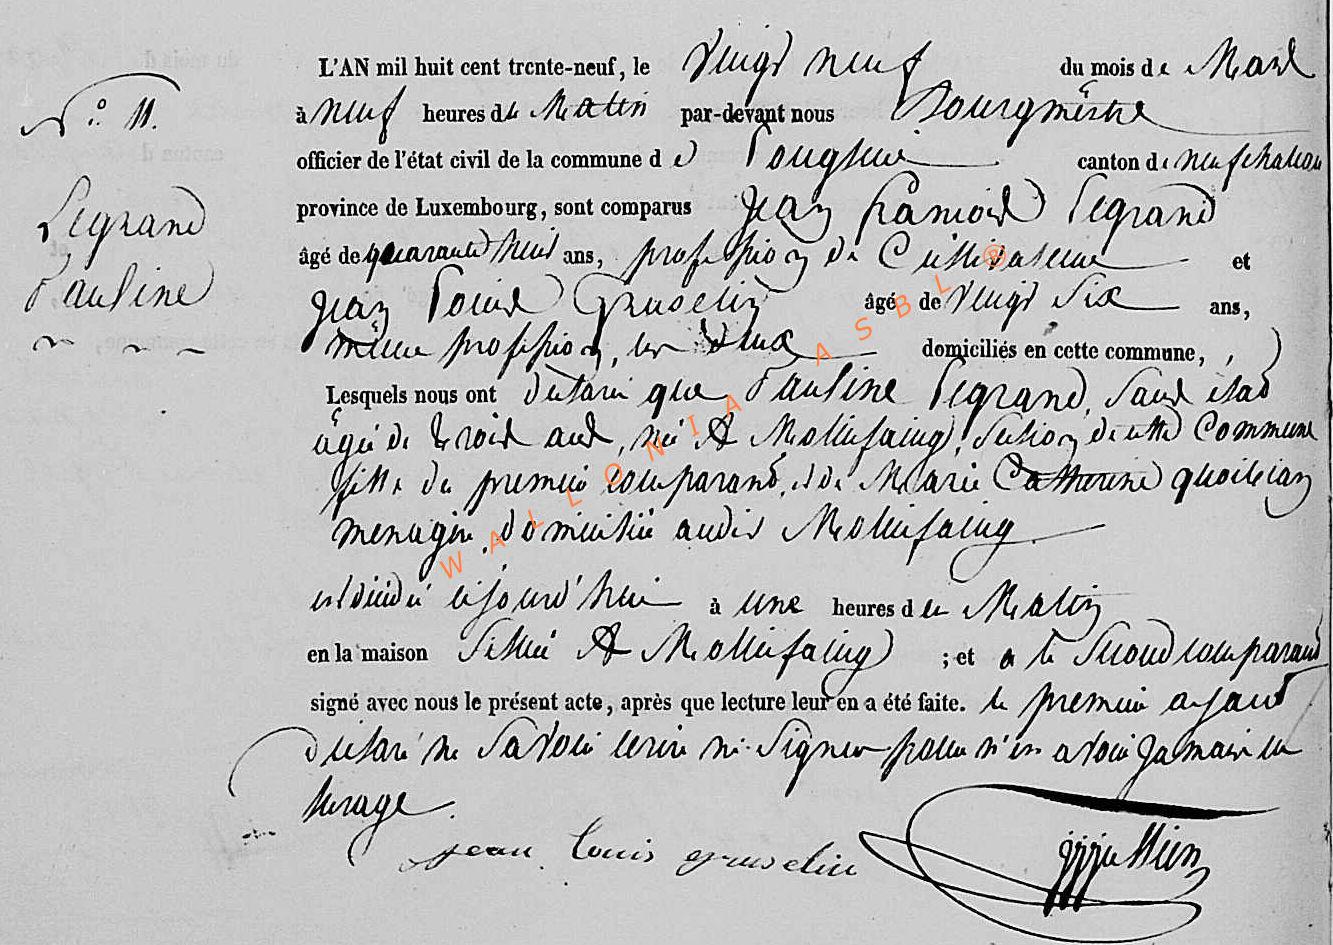 N.° 11.
Legrand
Pauline
L'AN mil huit cent trente-neuf, le vingt neuf du mois de Mars
à neuf heures du Matin par-devant nous Bourgmestre
officier de l'état civil de la commune de Longlier canton de neufchateau
province de Luxembourg, sont comparus Jean francois Legrand
âgé de quarante huit ans, profession de Cultivateur et
Jean Louis Gruselin âgé de vingt Six ans,
même profession, les deux domiciliés en cette commune,
Lesquels nous ont déclaré que Pauline Legrand, Sans état
âgée de trois ans, née A Mollifaing, Section de cette Commune
fille du premier comparant, et de Marie Catherine
menagère, domiciliée audit Mollifaing.
est décédée cejourd'hui à une heures du Matin
en la maison Sittuée A Mollifaing ; et a le Second comparant
signé avec nous le présent acte, après que lecture leur en a été faite. le premier ayant
déclaré ne Savoir écrire ni Signer pour n'en avoir Jamais eu
lusage.
Jean Louis gruselin
WALLONIA ASBL ®